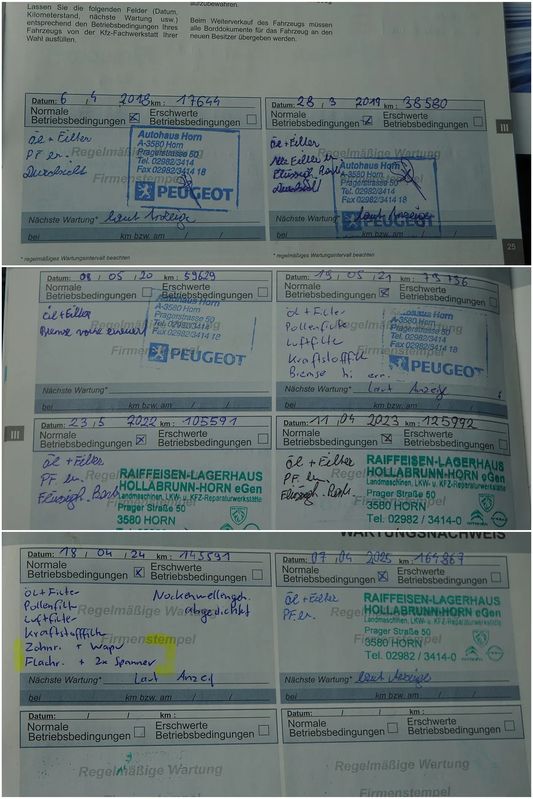 Lassen Sie die folgenden Felder (Datum,
Kilometerstand, nächste Wartung usw.)
entsprechend den Betriebsbedingungen Ihres
Fahrzeugs von der Kfz-Fachwerkstatt Ihrer
Wahl ausfüllen.
aufzubewahren.
Beim Weiterverkauf des Fahrzeugs müssen
alle Borddokumente für das Fahrzeug an den
neuen Besitzer übergeben werden.
Datum: 6 / 4 / 2018 km: 17644
Normale Betriebsbedingungen
Erschwerte Betriebsbedingungen
Öl + Filter
PF er.
Regelmäßige Wartung
Firmenstempel
Autohaus Horn
A-3580 Horn
Pragerstrasse 50
Tel. 02982/3414
Fax 02982/3414 18
PEUGEOT
Nächste Wartung* laut Anzeige
bei km bzw. am / /
* regelmäßiges Wartungsintervall beachten
Datum: 28 / 3 / 2019 km: 38580
Normale Betriebsbedingungen
Erschwerte Betriebsbedingungen
Öl + Filter
Alle Filter er
Regelmäßige Wartung
Firmenstempel
Autohaus Horn
A-3580 Horn
Pragerstrasse 50
Tel. 02982/3414
Fax 02982/3414 18
PEUGEOT
Nächste Wartung* laut Anzeige
bei km bzw. am / /
* regelmäßiges Wartungsintervall beachten
III
25
Datum: 08 / 05 / 20 km: 59629
Normale Betriebsbedingungen
Erschwerte Betriebsbedingungen
Öl + Filter
Bremse vorne erneuert
Regelmäßige Wartung
Firmenstempel
Autohaus Horn
A-3580 Horn
Pragerstrasse 50
Tel. 02982/3414
Fax 02982/3414 18
PEUGEOT
Nächste Wartung*
bei km bzw. am / /
Datum: 19 / 05 / 21 km: 79736
Normale Betriebsbedingungen
Erschwerte Betriebsbedingungen
Öl + Filter
Pollenfilter
Luftfilter
Kraftstofffilt
Bremse hi ern.
Regelmäßige Wartung
Firmenstempel
Autohaus Horn
A-3580 Horn
Pragerstrasse 50
Tel. 02982/3414
Fax 02982/3414 18
PEUGEOT
Nächste Wartung* laut Anzeig
bei km bzw. am / /
III
Datum: 23 / 5 / 2022 km: 105591
Normale Betriebsbedingungen
Erschwerte Betriebsbedingungen
Öl + Filter
PF er.
RAIFFEISEN-LAGERHAUS
HOLLABRUNN-HORN eGen
Landmaschinen, LKW- u. KFZ-Reparaturwerkstätte
Prager Straße 50
3580 HORN
Tel. 02982 / 3414-0
Datum: 11 / 04 / 2023 km: 125992
Normale Betriebsbedingungen
Erschwerte Betriebsbedingungen
Öl + Filter
PF er.
RAIFFEISEN-LAGERHAUS
HOLLABRUNN-HORN eGen
Landmaschinen, LKW- u. KFZ-Reparaturwerkstätte
Prager Straße 50
3580 HORN
Tel. 02982 / 3414-0
WARTUNGSNACHWEIS
Datum: 18 / 04 / 24 km: 143591
Normale Betriebsbedingungen
Erschwerte Betriebsbedingungen
Öl + Filter
Pollenfilt
Luftfilter
Kraftstofffilt
Zahnr. + Wapu
Flachr. + 2x Spanner
Nockenwellengeh.
abgedichtet
Regelmäßige Wartung
Firmenstempel
Nächste Wartung* laut Anzeig
bei km bzw. am / /
Datum: 07 / 04 / 2025 km: 164867
Normale Betriebsbedingungen
Erschwerte Betriebsbedingungen
Öl + Filter
PF er.
RAIFFEISEN-LAGERHAUS
HOLLABRUNN-HORN eGen
Landmaschinen, LKW- u. KFZ-Reparaturwerkstätte
Prager Straße 50
3580 HORN
Tel. 02982 / 3414-0
Nächste Wartung* laut Anzeige
bei km bzw. am / /
Datum: / / km:
Normale Betriebsbedingungen
Erschwerte Betriebsbedingungen
Regelmäßige Wartung
Firmenstempel
Datum: / / km:
Normale Betriebsbedingungen
Erschwerte Betriebsbedingungen
Regelmäßige Wartung
Firmenstempel